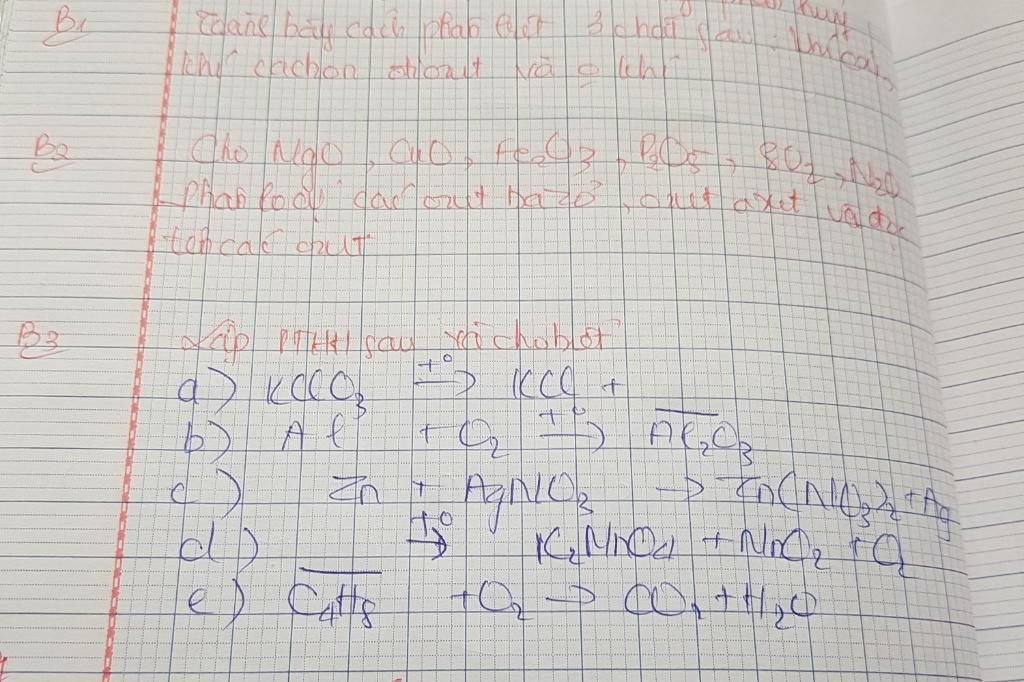 B1 cách phân 3 chất sau:
khí và o khí
B2 Cho MgO, CuO, Fe2O3, P2O5, SO2, N2O
Phân loại các oxit bazơ, oxit axit và đọc
tên các oxit
B3 Lập PTHH sau cho biết
a) KClO3 t°→ KCl +
b) Al + O2 t°→ Al2O3
c) Zn + AgNO3 → Zn(NO3)2 + Ag
d) t°→ K2MnO4 + MnO2 + O2
e) C4H8 + O2 → CO2 + H2O